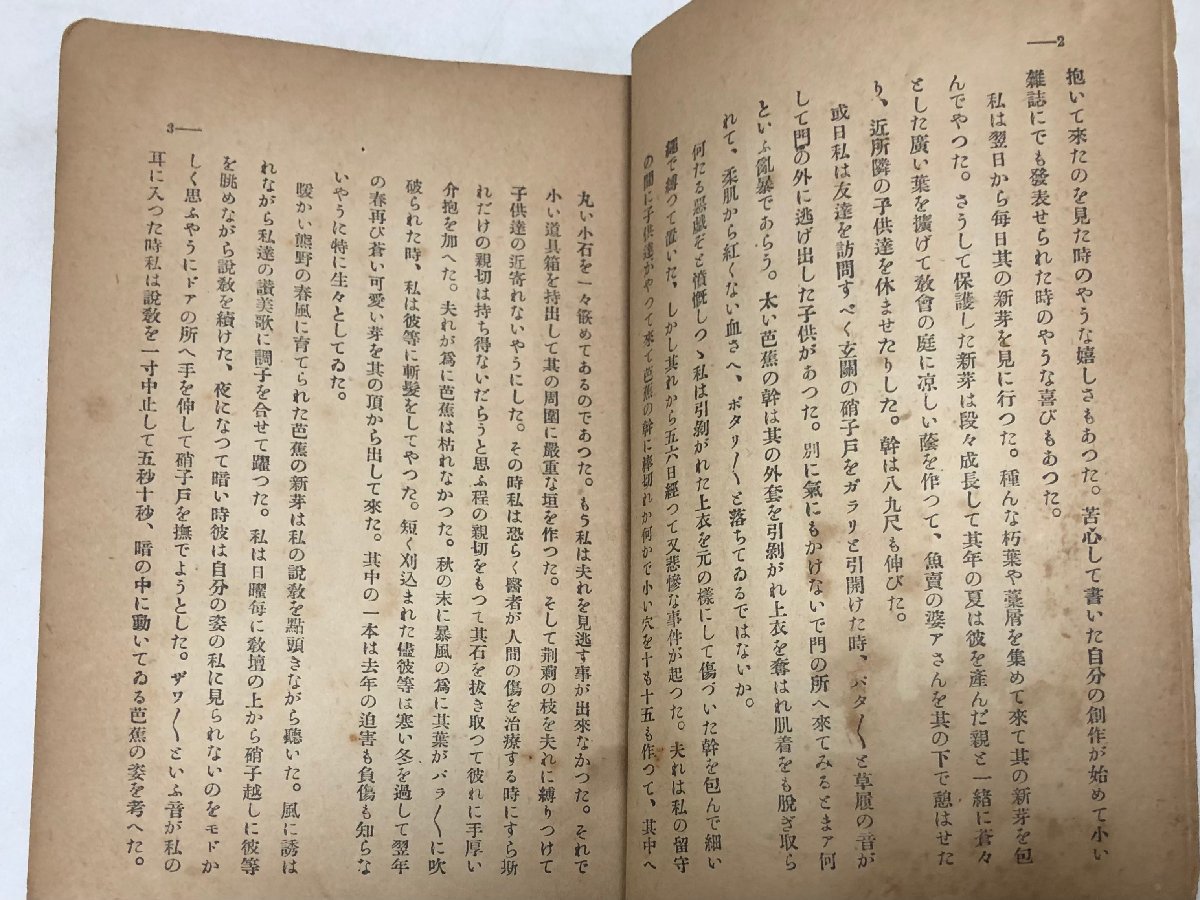 2
抱いて來たのを見た時のやうな嬉しさもあつた。苦心して書いた自分の創作が始めて小い
雜誌にでも發表せられた時のやうな喜びもあつた。
私は翌日から毎日其の新芽を見に行つた。種んな朽葉や藁屑を集めて來て其の新芽を包
んでやつた。さうして保護した新芽は段々成長して其年の夏は彼を產んだ親と一緒に蒼々
とした廣い葉を擴げて敎會の庭に凉しい蔭を作つて、魚賣の婆アさんを其の下で憩はせた
り、近所隣の子供達を休ませたりした。幹は八九尺も伸びた。
或日私は友達を訪問すべく玄關の硝子戸をガラリと引開けた時、バタ〳〵と草履の音が
して門の外に逃げ出した子供があつた。別に氣にもかけないで門の所へ來てみるとまア何
といふ亂暴であらう。太い芭蕉の幹は其の外套を引剝がれ上衣を奪はれ肌着をも脫ぎ取ら
れて、柔肌から紅くない血さへ、ポタリ〳〵と落ちてゐるではないか。
何たる惡戯ぞと憤慨しつゝ私は引剝がれた上衣を元の樣にして傷づいた幹を包んで細い
繩で縛つて置いた、しかし其れから五六日經つて又悲慘な事件が起つた。夫れは私の留守
の間に子供達がやつて來て芭蕉の幹に棒切れか何かで小い穴を十も十五も作つて、其中へ
3
丸い小石を一々嵌めてあるのであつた。もう私は夫れを見逃す事が出來なかつた。それで
小い道具箱を持出して其の周圍に嚴重な垣を作つた。そして荆剌の枝を夫れに縛りつけて
子供達の近寄れないやうにした。その時私は恐らく醫者が人間の傷を治療する時にすら斯
れだけの親切は持ち得ないだらうと思ふ程の親切をもつて其石を拔き取つて彼れに手厚い
介抱を加へた。夫れが爲に芭蕉は枯れなかつた。秋の末に暴風の爲に其葉がバラ〳〵に吹
破られた時、私は彼等に斬髮をしてやつた。短く刈込まれた儘彼等は寒い冬を過して翌年
の春再び蒼い可愛い芽を其の頂から出して來た。其中の一本は去年の迫害も負傷も知らな
いやうに特に生々としてゐた。
暖かい熊野の春風に育てられた芭蕉の新芽は私の說敎を點頭きながら聽いた。風に誘は
れながら私達の讃美歌に調子を合せて躍つた。私は日曜每に敎壇の上から硝子越しに彼等
を眺めながら說敎を續けた、夜になつて暗い時彼は自分の姿の私に見られないのをモドか
しく思ふやうにドアの所へ手を伸して硝子戸を撫でようとした。ザワ〳〵といふ音が私の
耳に入つた時私は說敎を一寸中止して五秒十秒、暗の中に動いてゐる芭蕉の姿を考へた。